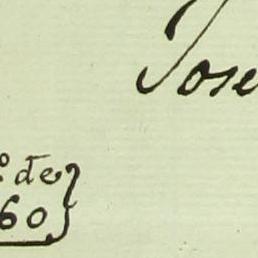 Jose
º de
60